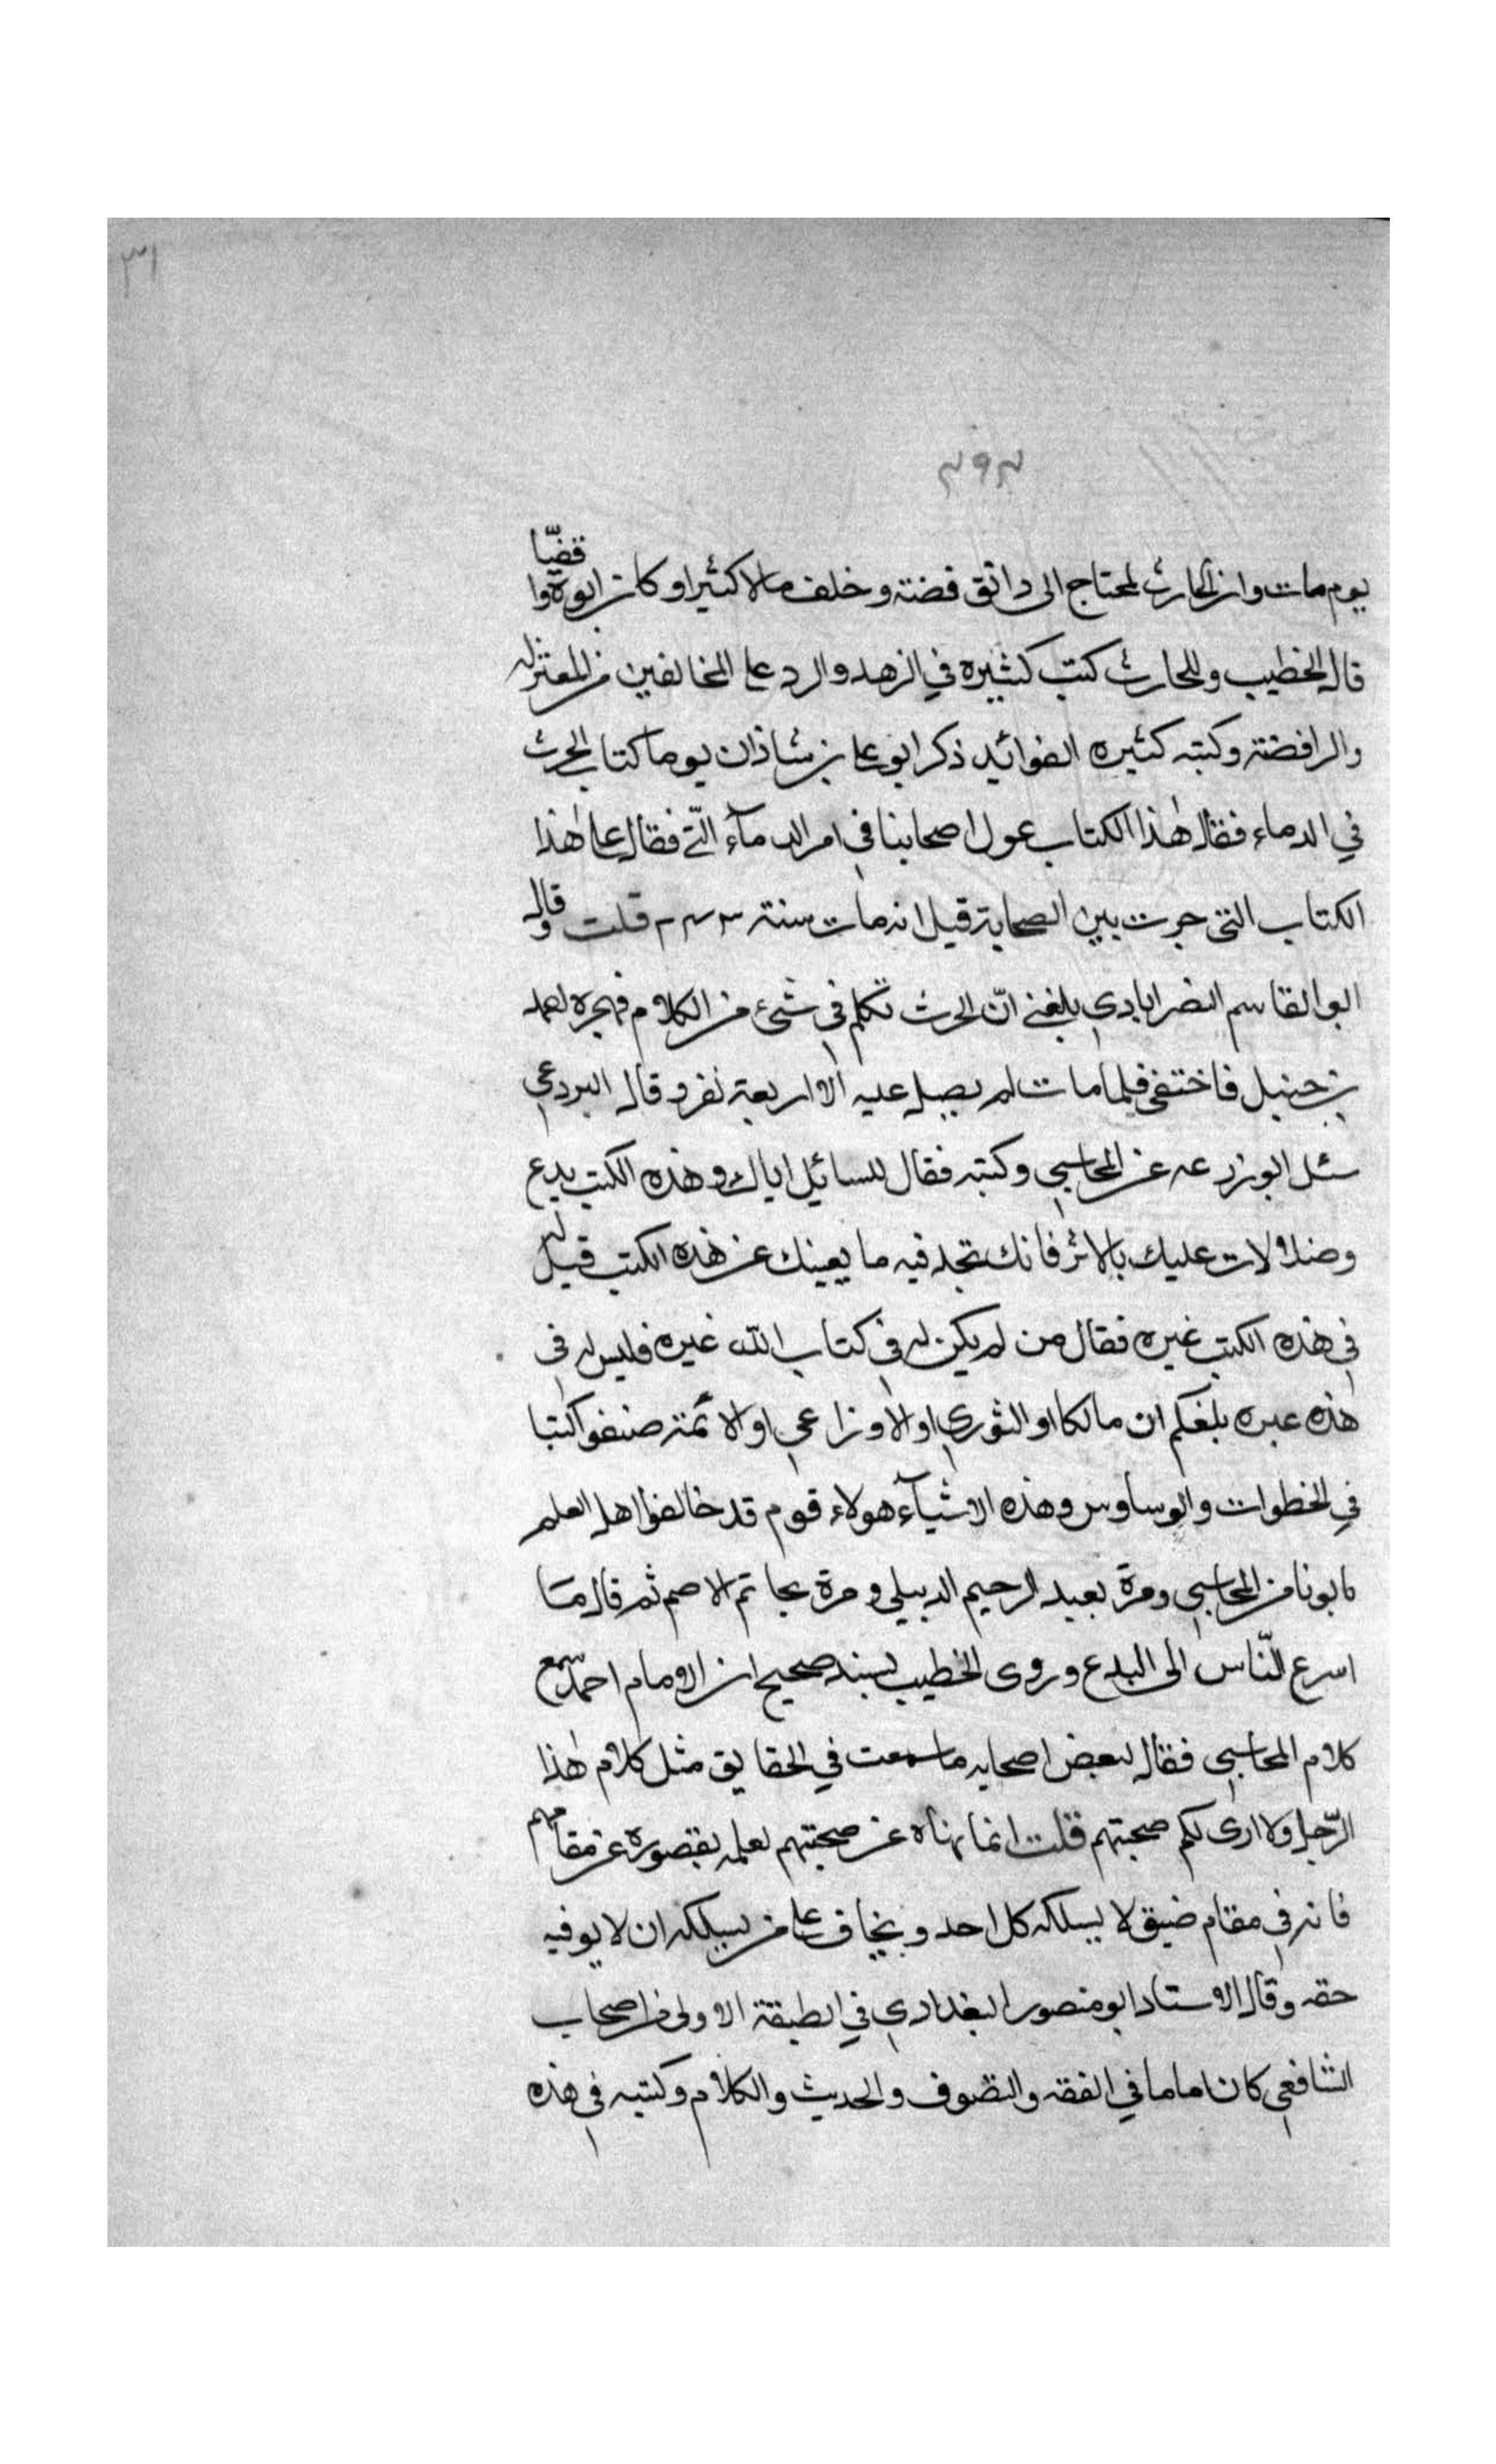 ٣١
٣٩٣
يوم مات وان الحارث لمحتاج الى دانق فضة وخلف مالا كثيرا وكان ابوه واقضيا
قال الخطيب وللحارث كتب كثيره في الزهد والرد على المخالفين من المعتزله
والرافضة وكتبه كثيره الفوائد ذكر ابو على بن شاذان يوما كتاب الحرث
في الدماء فقال هذا الكتاب عول اصحابنا في امر الدمآء الّتي فقال على هذا
الكتاب التى جرت بين الصحابة قيل انه مات سنة ٢٤٣ قلت وقال
ابو القاسم النصرابادي بلغني انّ الحرث تكلم في شئ من الكلام فهجره احمد
بن حنبل فاختفى فلما مات لم يصل عليه الا اربعة نفر وقال البردعي
سئل ابو زرعه عن المحاسبي وكتبه فقال للسائل اياك وهذه الكتب بدع
وضلالات عليك بالاثر فانك تجد فيه ما يغينك عن هذه الكتب قيل له
في هذه الكتب عبره فقال من لم يكن له في كتاب الله عبره فليس له في
هذه عبره بلغكم ان مالكا او الثوري او الاوزاعي او الائمة صنفوا كتبا
في الخطوات والوساوس وهذه الاشيآء هولاء قوم قد خالفوا اهل العلم
ياتونا من المحاسبي ومرة بعبد الرحيم الدبيلي ومرة بحاتم الاصم ثم قال ما
اسرع النّاس الى البدع وروى الخطيب بسند صحيح ان الامام احمد سمع
كلام المحاسبي فقال لبعض اصحابه ما سمعت في الحقايق مثل كلام هذا
الرّجل ولا ارى لكم صحبتهم قلت انما نهاه عن صحبتهم لعلمه بقصوره عن مقامهم
فانه في مقام ضيق لا يسلكه كل احد ويخاف على من يسلكه ان لا يوفيه
حقه وقال الاستاد ابو منصور البغدادي في الطبقة الاولى من اصحاب
الشافعي كان اماما في الفقه والتصوف والحديث والكلام وكتبه في هذه